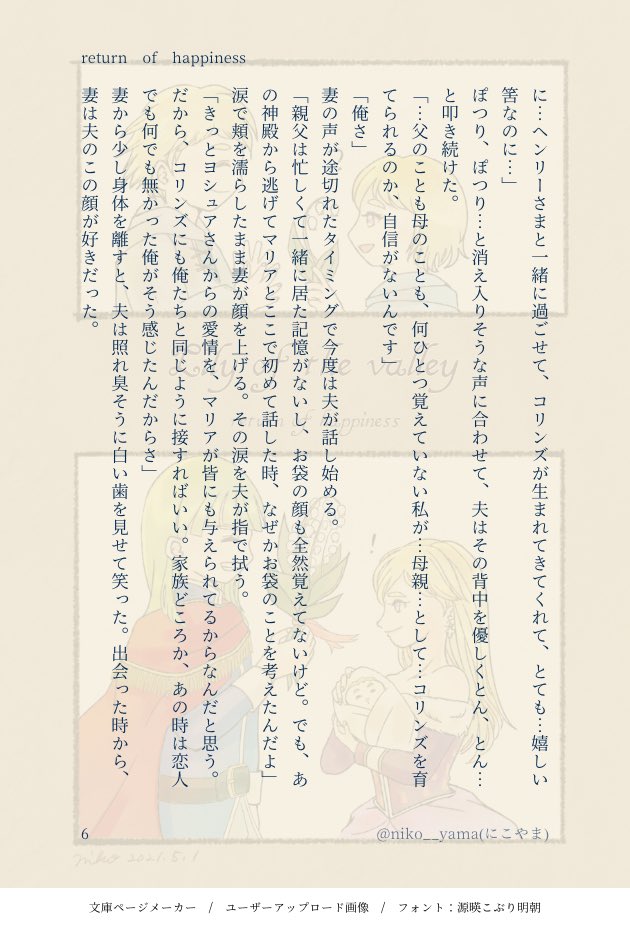 return of happiness
に…ヘンリーさまと一緒に過ごせて、コリンズが生まれてきてくれて、とても…嬉しい
筈なのに…」
ぽつり、ぽつり…と消え入りそうな声に合わせて、夫はその背中を優しくとん、とん…
と叩き続けた。
「…父のことも母のことも、何ひとつ覚えていない私が…母親…として…コリンズを育
てられるのか、自信がないんです」
「俺さ」
妻の声が途切れたタイミングで今度は夫が話し始める。
「親父は忙しくて一緒に居た記憶がないし、お袋の顔も全然覚えてないけど。でも、あ
の神殿から逃げてマリアとここで初めて話した時、なぜかお袋のことを考えたんだよ」
涙で頬を濡らしたまま妻が顔を上げる。その涙を夫が指で拭う。
「きっとヨシュアさんからの愛情を、マリアが皆にも与えられてるからなんだと思う。
だから、コリンズにも俺たちと同じように接すればいい。家族どころか、あの時は恋人
でも何でも無かった俺がそう感じたんだからさ」
妻から少し身体を離すと、夫は照れ臭そうに白い歯を見せて笑った。出会った時から、
妻は夫のこの顔が好きだった。
Lily of the valley
return of happiness
!
6
@niko__yama(にこやま)
niko 2021.5.1
文庫ページメーカー / ユーザーアップロード画像 / フォント：源暎こぶり明朝